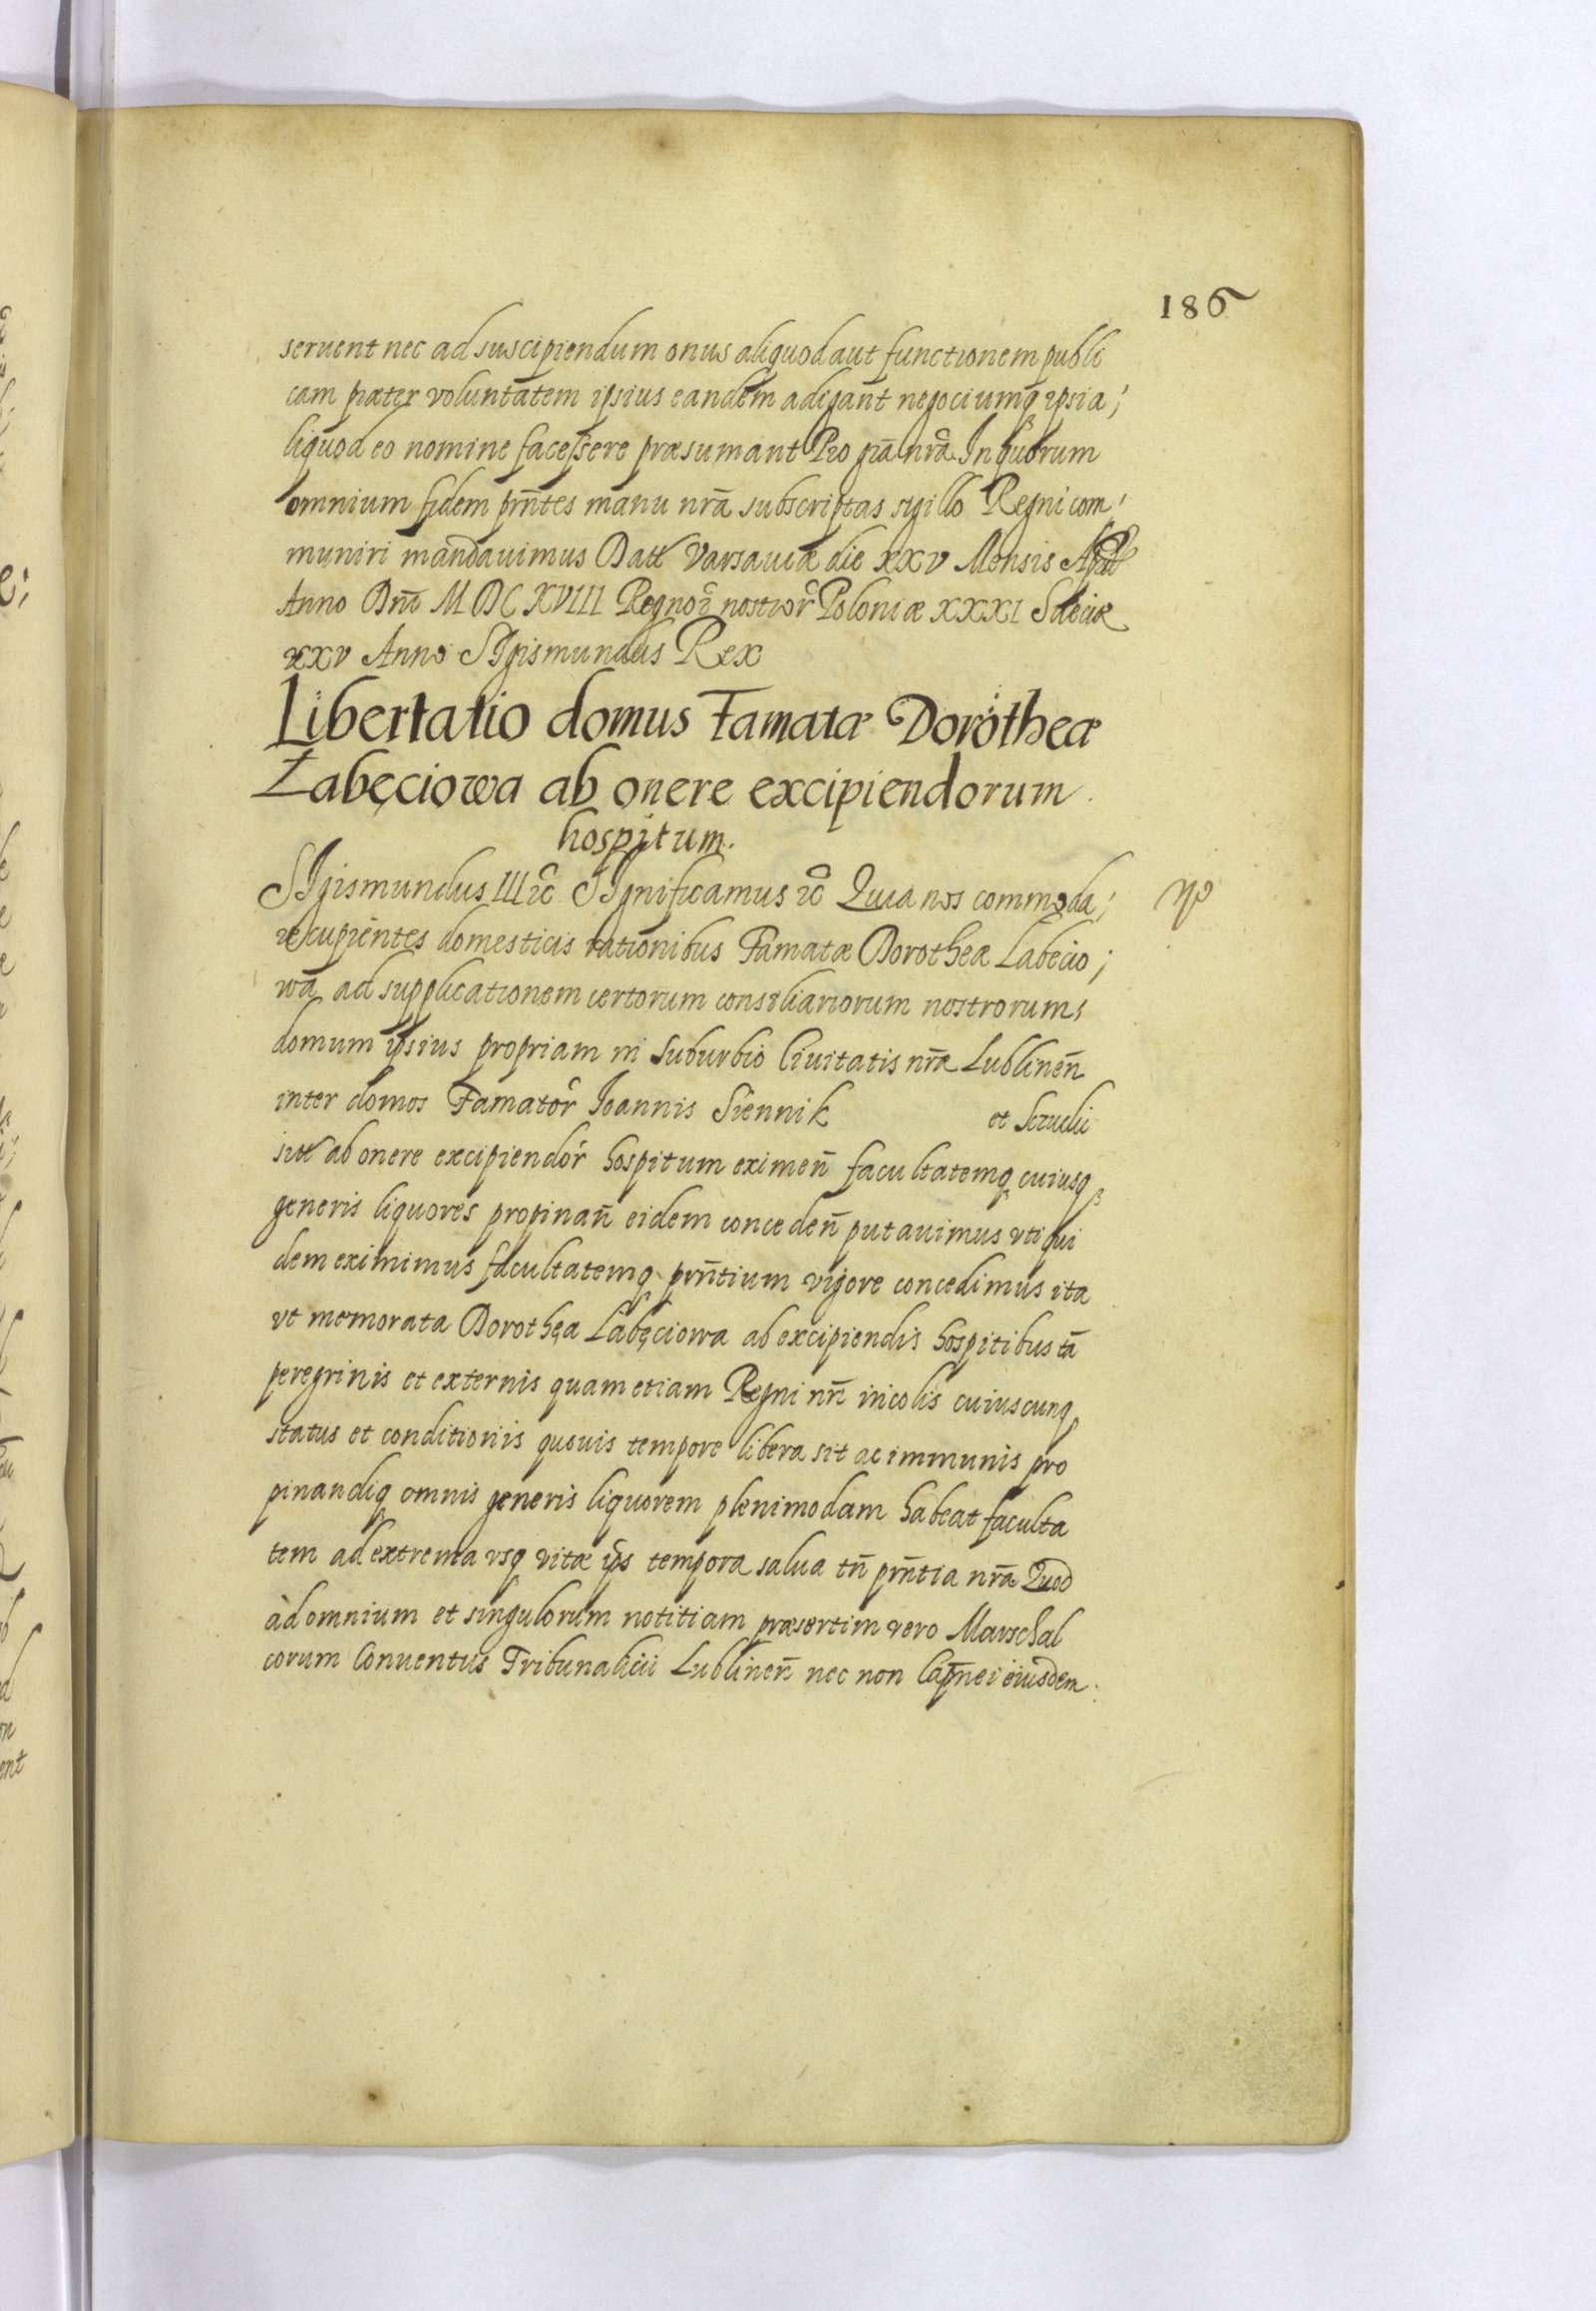 186
seruent nec ad suscipiendum onus aliquod aut functionem publi
cam præter voluntatem ipsius eandem adigant negociumq ipsi a;
liquod eo nomine facessere præsumant Pro gra nra. In quorum
omnium fidem pntes manu nra subscriptas sigillo Regni com
muniri mandauimus Datt Varsauiæ die XXV Mensis
Anno Dni MDCXVIII Regnor nostror Poloniæ XXXI Sueciæ
XXV Anno Sigismundus Rex
Libertatio domus Famatæ Dorotheæ
Łabęciowa ab onere excipiendorum
hospitum.
Sigismundus III ec Significamus ec Quia nos commoda;
re cupientes domesticis rationibus Famatæ Dorotheæ Labecio;
wa ad supplicationem certorum consiliariorum nostrorum,
domum ipsius propriam in suburbio Ciuitatis nræ Lublinen
inter domos Famator Ioannis Siennik et
sitt ab onere excipiendor hospitum eximen facultatemq cuiusq
generis liquores propinan eidem conceden putauimus vti qui
dem eximimus facultatemq pntium vigore concedimus ita
vt memorata Dorothęa Labęciowa ab excipiendis hospitibus ta
peregrinis et externis quam etiam Regni nri incolis cuiuscunq
status et conditionis quouis tempore libera sit ac immunis pro
pinandiq omnis generis liquorem plenimodam habeat faculta
tem ad extrema vsq vitæ ips tempora salua tn pntia nra Quod
ad omnium et singulorum notitiam præsertim vero Marschal
corum Conuentus Tribunalicii Lublinen nec non Capnei eiusdem